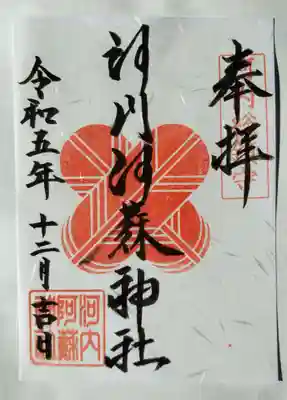 奉拝
河内阿蘇神社
令和五年 十二月吉日
河内
阿蘇